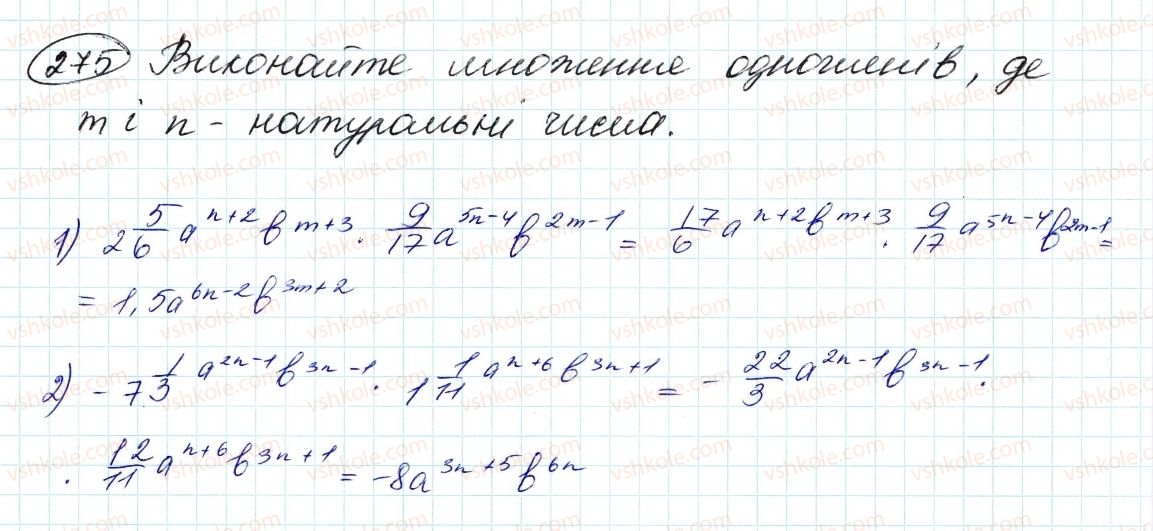 275 Виконайте множення одночленів, де
m і n - натуральні числа.
1) 2 5/6 a^(n+2) b^(m+3) · 9/17 a^(5n-4) b^(2m-1) = 17/6 a^(n+2) b^(m+3) · 9/17 a^(5n-4) b^(2m-1) =
= 1,5a^(6n-2) b^(3m+2)
2) - 7 1/3 a^(2n-1) b^(3n-1) · 1 1/11 a^(n+6) b^(3n+1) = - 22/3 a^(2n-1) b^(3n-1) ·
· 12/11 a^(n+6) b^(3n+1) = -8a^(3n+5) b^(6n)